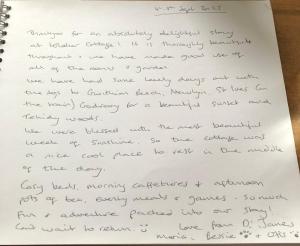 Sept 2023
Thankyou for an absolutely delightful stay
at Cottage! It is thoroughly beautiful
throughout & we have made good use of
all of the rooms & games.
We have had some lovely days out with
the dogs to Gwithian Beach, Newlyn, St Ives (on
the train) Godrevy for a beautiful sunset and
Tehidy woods.
We were blessed with the most beautiful
week of sunshine. So the cottage was
a nice cool place to rest in the middle
of the day.
Cosy beds, morning caffetieres & afternoon
pots of tea, evening meals & games. So much
fun & adventure packed into our stay!
Can't wait to return. Love from
Maria, Bessie & Otis